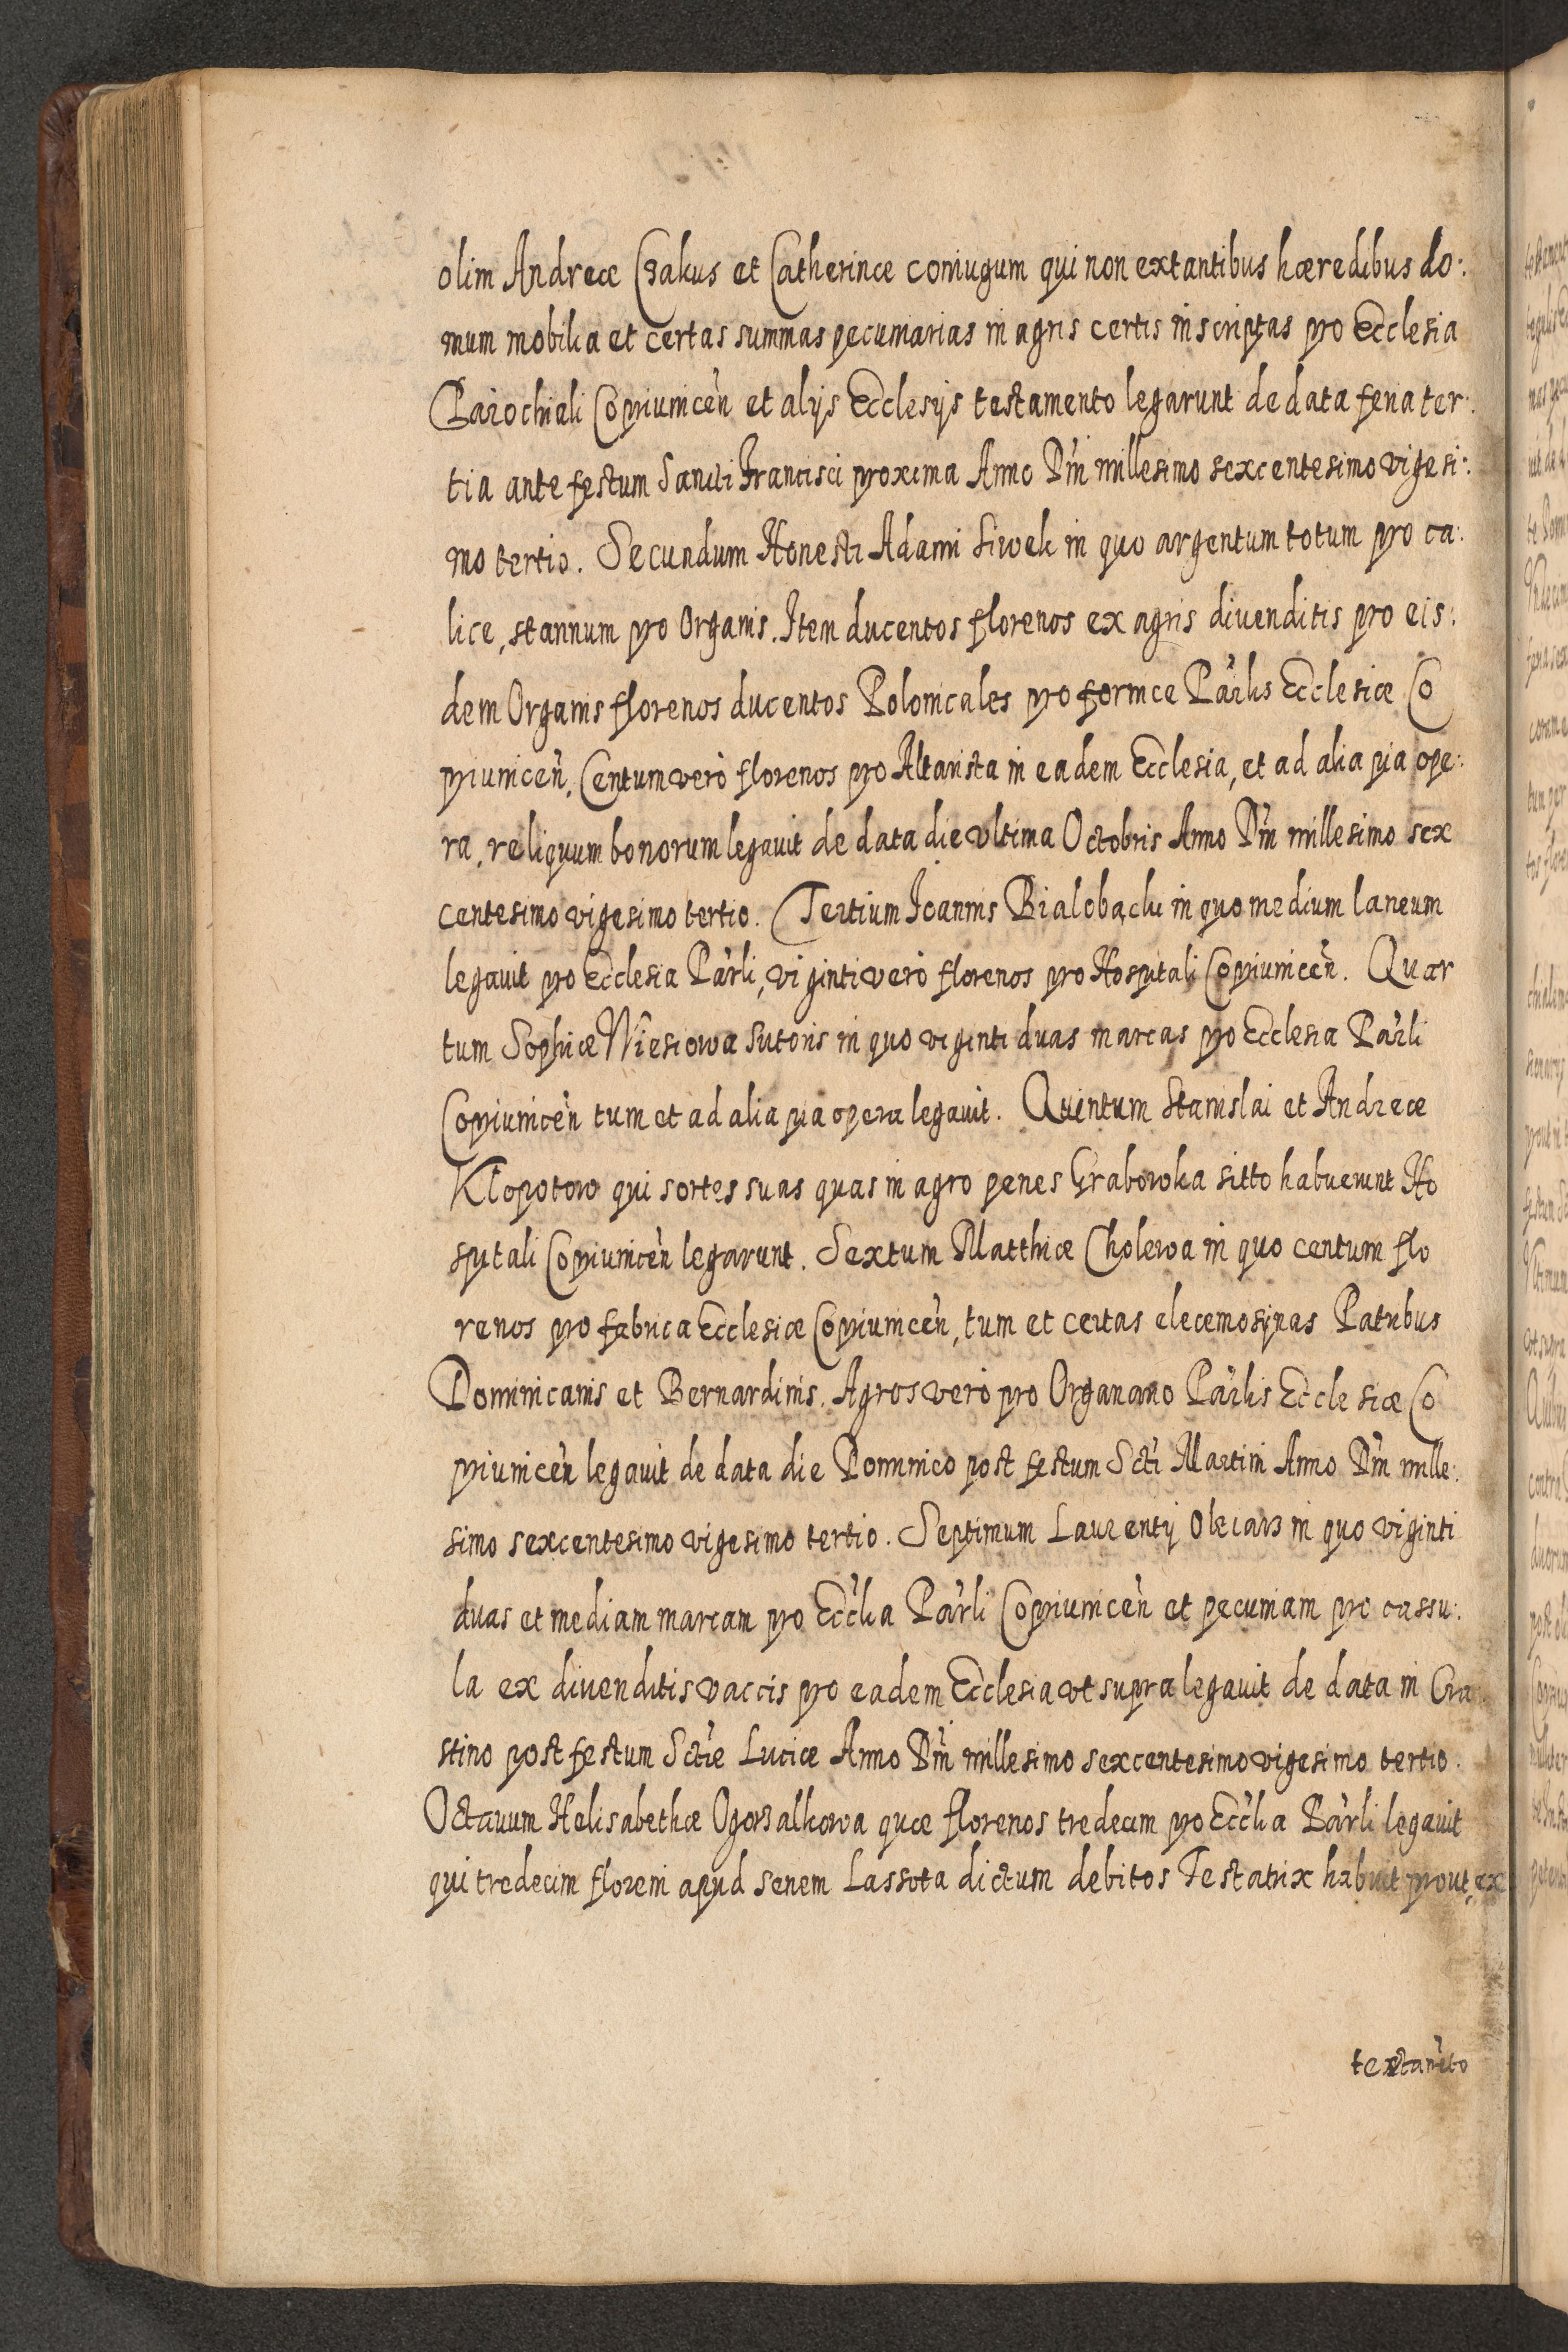 olim Andreæ Czakus et Catherinæ coniugum qui non extantibus hæredibus do:
mum mobilia et certas summas pecuniarias in agris certis inscriptas pro Ecclesia
Parochiali Copriunicen̄ et alijs Ecclesijs testamento legarunt de data feria ter:
tia ante festum Sancti Francisci proxima Anno Dn̄i millesimo sexcentesimo vigesi:
mo tertio. Secundum Honesti Adami Siwek in quo argentum totum pro ca:
lice, stannum pro Organis. Item ducentos florenos ex agris diuenditis pro eis:
dem Organis florenos ducentos Polonicales pro fornice Pār̄lis Ecclesiæ Co
priunicen̄, Centum verò florenos pro Altarista in eadem Ecclesia, et ad alia pia ope:
ra, reliquum bonorum legauit de data die vltima Octobris Anno Dn̄i millesimo sex
centesimo vigesimo tertio. Tertium Ioannis Bialobacki in quo medium laneum
legauit pro Ecclesia Pār̄li, viginti verò florenos pro Hospitali Copriunicen̄. Quar
tum Sophiæ Wiesiowa sutoris in quo viginti duas marcas pro Ecclesia Pār̄li
Copriunicen̄ tum et ad alia pia opera legauit. Quintum Stanislai et Andreæ
Klopotow qui sortes suas quas in agro penes Grabowka sitto habuerunt Ho
spitali Copriunicen̄ legarunt. Sextum Matthiæ Cholewa in quo centum flo
renos pro fabrica Ecclesiæ Copriunicen̄, tum et certas eleemosijnas Patribus
Dominicanis et Bernardinis. Agros verò pro Organario Pār̄lis Ecclesiæ Co
priunicen̄ legauit de data die Dominico post festum Scti Martini Anno Dn̄i mille:
simo sexcentesimo vigesimo tertio. Septimum Laurentij Olecarz in quo viginti
duas et mediam marcam pro Eccl̄ia Pār̄li Copriunicen̄ et pecuniam pro cassu:
la ex diuenditis vaccis pro eadem Ecclesia vt supra legauit de data in Cra
stino post festum Sctæ Luciæ Anno Dn̄i millesimo sexcentesimo vigesimo tertio.
Octauum Helisabethæ Ogorzalkowa quæ florenos tredecim pro Eccl̄ia Pār̄li legauit
qui tredecim floreni apud senem Lassota dictum debitos Testatrix habuit prout ex
testan̄to